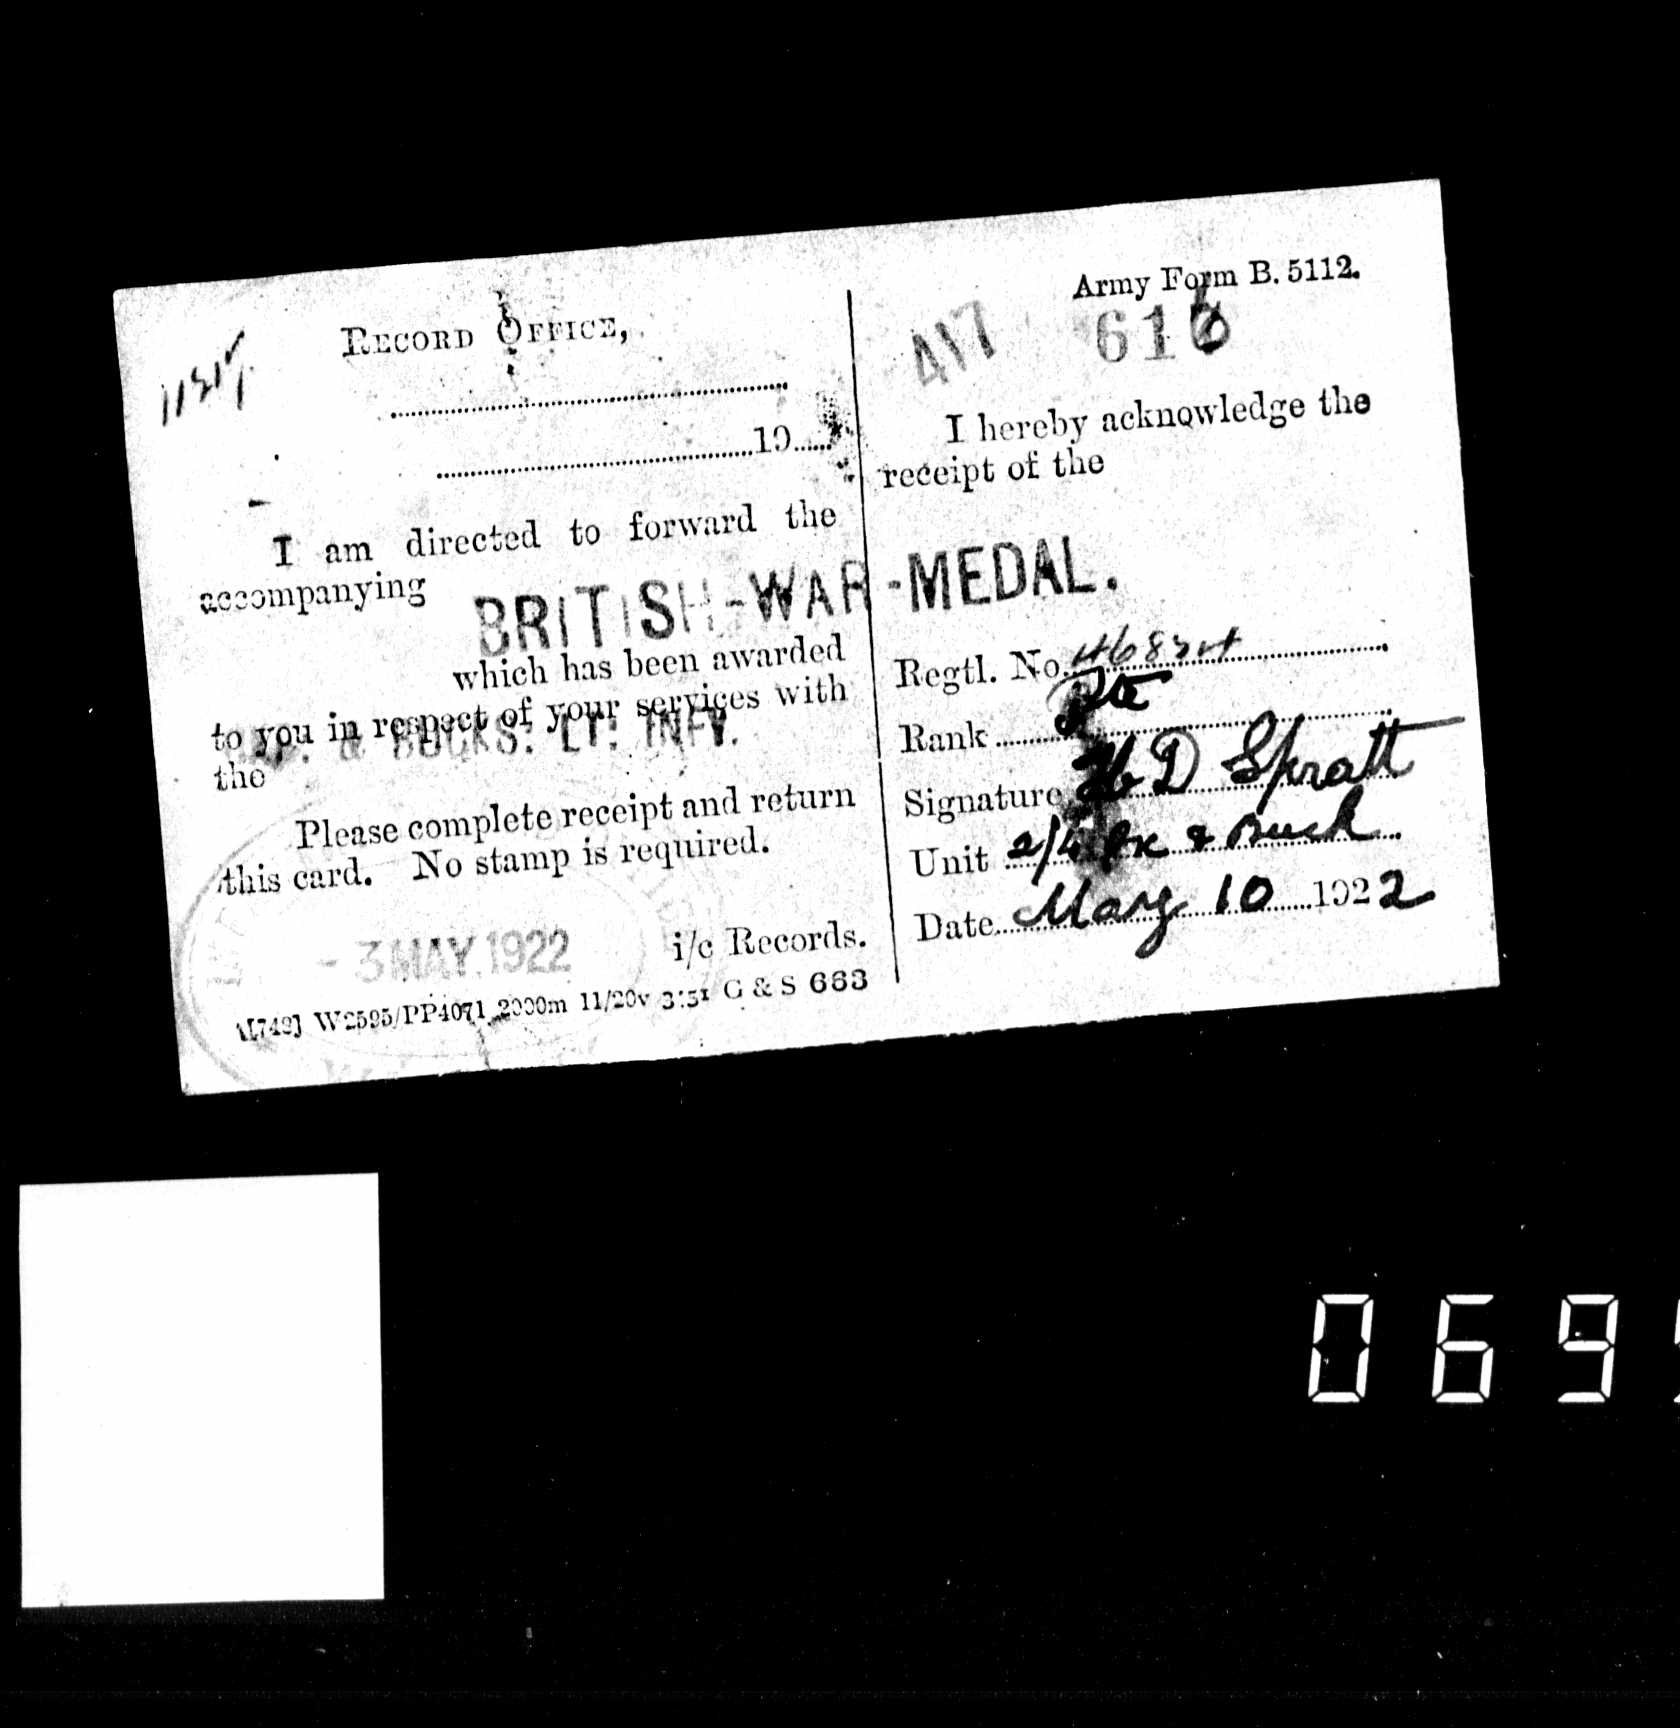 RECORD OFFICE,
19
I am directed to forward the
accompanying
BRITISH-WAR-MEDAL.
which has been awarded
to you in respect of your services with
& BUCKS. LT. INFY.
the
Please complete receipt and return
this card. No stamp is required.
- 3 MAY.1922
i/c Records.
W2595/PP4071 2000m 11/20v G & S 663
Army Form B. 5112.
417 616
I hereby acknowledge the
receipt of the
Regtl. No.
Rank Pte
Signature H D Spratt
Unit 2/4 Ox & Buck
Date May 10 1922
069